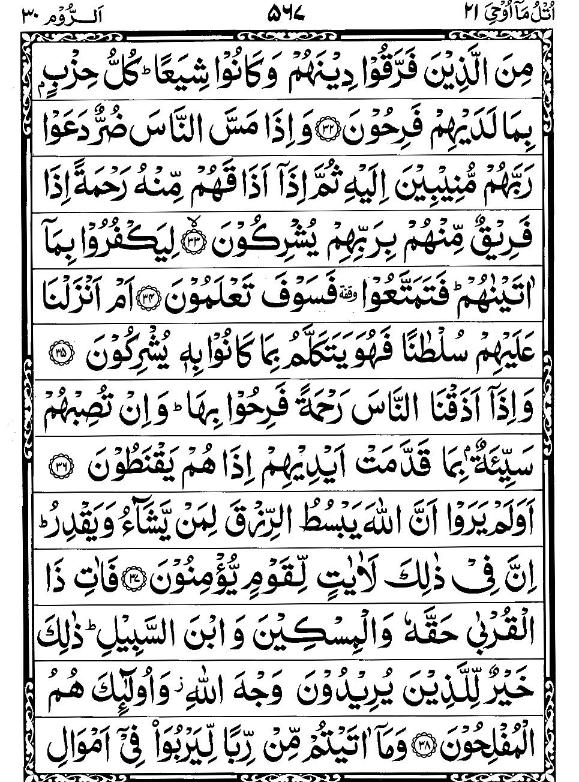 اُتْلُ مَاۤ اُوْحِیَ ۲۱ ۵۶۷ اَلرُّوْم ۳۰
مِنَ الَّذِیْنَ فَرَّقُوْا دِیْنَهُمْ وَ كَانُوْا شِیَعًا ؕ كُلُّ حِزْبٍۭ
بِمَا لَدَیْهِمْ فَرِحُوْنَ ۝۳۲ وَ اِذَا مَسَّ النَّاسَ ضُرٌّ دَعَوْا
رَبَّهُمْ مُّنِیْبِیْنَ اِلَیْهِ ثُمَّ اِذَاۤ اَذَاقَهُمْ مِّنْهُ رَحْمَةً اِذَا
فَرِیْقٌ مِّنْهُمْ بِرَبِّهِمْ یُشْرِكُوْنَ ۙ۝۳۳ لِیَكْفُرُوْا بِمَاۤ
اٰتَیْنٰهُمْ ؕ فَتَمَتَّعُوْا وقفة فَسَوْفَ تَعْلَمُوْنَ ۝۳۴ اَمْ اَنْزَلْنَا
عَلَیْهِمْ سُلْطٰنًا فَهُوَ یَتَكَلَّمُ بِمَا كَانُوْا بِهٖ یُشْرِكُوْنَ ۝۳۵
وَ اِذَاۤ اَذَقْنَا النَّاسَ رَحْمَةً فَرِحُوْا بِهَا ؕ وَ اِنْ تُصِبْهُمْ
سَیِّئَةٌۢ بِمَا قَدَّمَتْ اَیْدِیْهِمْ اِذَا هُمْ یَقْنَطُوْنَ ۝۳۶
اَوَلَمْ یَرَوْا اَنَّ اللّٰهَ یَبْسُطُ الرِّزْقَ لِمَنْ یَّشَآءُ وَ یَقْدِرُ ؕ
اِنَّ فِیْ ذٰلِكَ لَاٰیٰتٍ لِّقَوْمٍ یُّؤْمِنُوْنَ ۝۳۷ فَاٰتِ ذَا
الْقُرْبٰی حَقَّهٗ وَ الْمِسْكِیْنَ وَ ابْنَ السَّبِیْلِ ؕ ذٰلِكَ
خَیْرٌ لِّلَّذِیْنَ یُرِیْدُوْنَ وَجْهَ اللّٰهِ ؗ وَ اُولٰٓئِكَ هُمُ
الْمُفْلِحُوْنَ ۝۳۸ وَ مَاۤ اٰتَیْتُمْ مِّنْ رِّبًا لِّیَرْبُوَا۠ فِیْۤ اَمْوَالِ